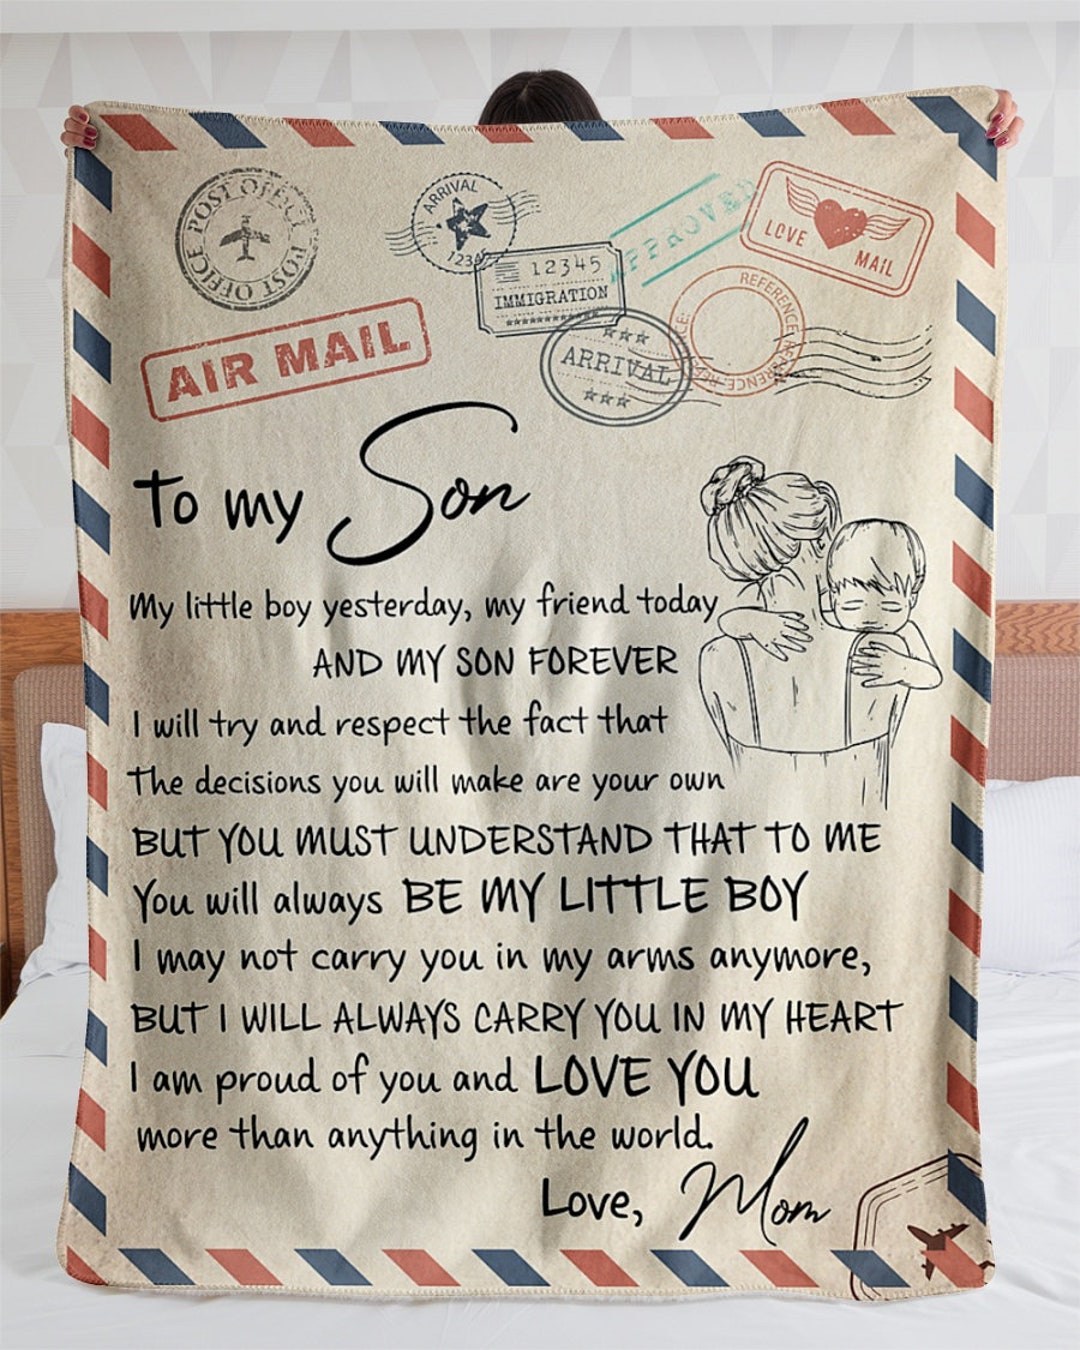 POST OFFICE POST OFFICE
ARRIVAL
1234
12345
IMMIGRATION
APPROVED
LOVE
MAIL
REFERENCE REFERENCE
ARRIVAL
AIR MAIL
To my Son
My little boy yesterday, my friend today
AND MY SON FOREVER
I will try and respect the fact that
The decisions you will make are your own
BUT YOU MUST UNDERSTAND THAT TO ME
You will always BE MY LITTLE BOY
I may not carry you in my arms anymore,
BUT I WILL ALWAYS CARRY YOU IN MY HEART
I am proud of you and LOVE YOU
more than anything in the world.
Love, Mom